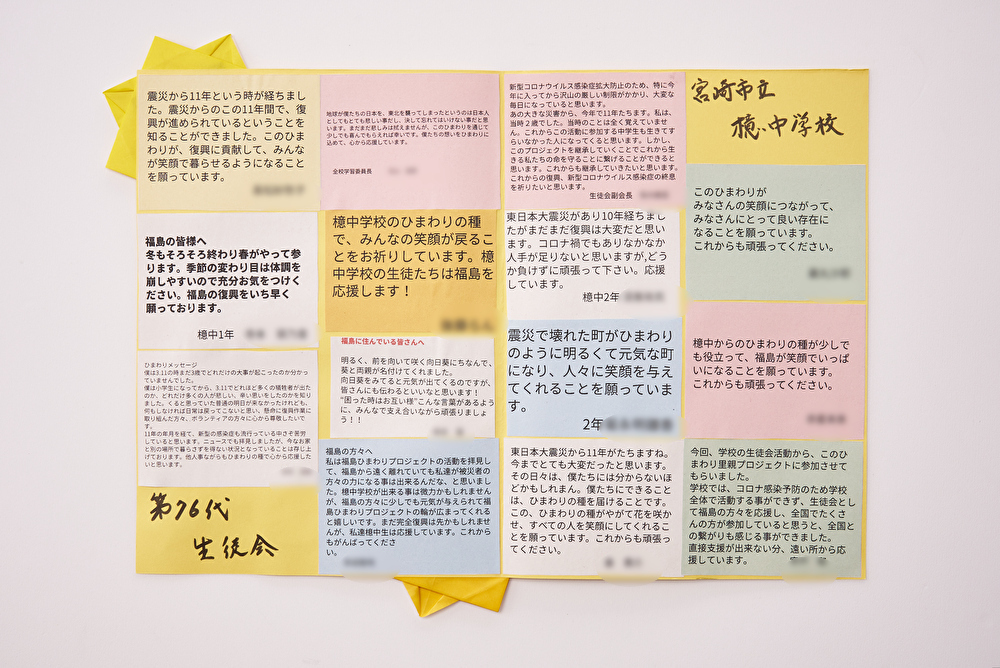 震災から11年という時が経ちまし
た。震災からのこの11年間で、復
興が進められているということを
知ることができました。このひま
わりが、復興に貢献して、みんな
が笑顔で暮らせるようになること
を願っています。
地球が僕たちの日本を、東北を襲ってしまったというのは日本人
としてもとても悲しい事だし、決して忘れてはいけない事だと思
います。まだまだ悲しみは拭えませんが、このひまわりを通じて
少しでも喜んでもらえれば幸いです。僕たちの想いをひまわりに
込めて、心から応援しています。
全校学習委員長
新型コロナウイルス感染症拡大防止のため、特に今
年に入ってから沢山の厳しい制限がかかり、大変な
毎日になっていると思います。
あの大きな災害から、今年で11年たちます。私は、
当時２歳でした。当時のことは全く覚えていませ
ん。これからこの活動に参加する中学生も生きてす
らいなかった人になってくると思います。しかし、
このプロジェクトを継承していくことでこれから生
きる私たちの命を守ることに繋げることができると
思います。これからも継承していきたいと思います。
これからの復興、新型コロナウイルス感染症の終息
を祈りたいと思います。
生徒会副会長
宮崎市立
檍中学校
福島の皆様へ
冬もそろそろ終わり春がやって参
ります。季節の変わり目は体調を
崩しやすいので充分お気をつけく
ださい。福島の復興をいち早く
願っております。
檍中1年
檍中学校のひまわりの種
で、みんなの笑顔が戻るこ
とをお祈りしています。檍
中学校の生徒たちは福島を
応援します！
東日本大震災があり10年経ちまし
たがまだまだ復興は大変だと思い
ます。コロナ禍でもありなかなか
人手が足りないと思いますが,どう
か負けずに頑張って下さい。応援
しています。
檍中2年
このひまわりが
みなさんの笑顔につながって、
みなさんにとって良い存在に
なることを願っています。
これからも頑張ってください。
ひまわりメッセージ
僕は3.11の時まだ3歳でどれだけの大事が起こったのか分かっ
ていませんでした。
僕は小学生になってから、3.11でどれほど多くの犠牲者が出た
のか、どれだけ多くの人が悲しい、辛い思いをしたのかを知り
ました。くると思っていた普通の明日が来なかったけれども、
何もしなければ日常は戻ってこないと思い、懸命に復興作業に
取り組んだ方々、ボランティアの方々に心から尊敬したいで
す。
11年の年月を経て、新型の感染症も流行っている中さぞ苦労
していると思います。ニュースでも拝見しましたが、今なお家
と別の場所で暮らさずを得ない状況となっていることは存じ上
げております。他人事ながらもひまわりの種で心から応援した
いと思います。
福島に住んでいる皆さんへ
明るく、前を向いて咲く向日葵にちなんで、
葵と両親が名付けてくれました。
向日葵をみてると元気が出てくるのですが、
皆さんにも伝わるといいなと思います！
“困った時はお互い様”こんな言葉があるよう
に、みんなで支え合いながら頑張りましょ
う！！
震災で壊れた町がひまわり
のように明るくて元気な町
になり、人々に笑顔を与え
てくれることを願っていま
す。
2年
檍中からのひまわりの種が少しで
も役立って、福島が笑顔でいっぱ
いになることを願っています。
これからも頑張ってください。
第76代
生徒会
福島の方々へ
私は福島ひまわりプロジェクトの活動を拝見し
て、福島から遠く離れていても私達が被災者の
方々の力になる事は出来るんだな、と思いまし
た。檍中学校が出来る事は微力かもしれません
が、福島の方々に少しでも元気が与えられて福
島ひまわりプロジェクトの輪が広まってくれる
と嬉しいです。まだ完全復興は先かもしれませ
んが、私達檍中生は応援しています。これから
もがんばってくださ
い。
東日本大震災から11年がたちますね。
今までとても大変だったと思います。
その日々は、僕たちには分からないほ
どかもしれまん。僕たちにできること
は、ひまわりの種を届けることです。
この、ひまわりの種がやがて花を咲か
せ、すべての人を笑顔にしてくれるこ
とを願っています。これからも頑張っ
てください。
今回、学校の生徒会活動から、このひ
まわり里親プロジェクトに参加させて
もらいました。
学校では、コロナ感染予防のため学校
全体で活動する事ができず、生徒会と
して福島の方々を応援し、全国でたくさ
んの方が参加していると思うと、全国と
の繋がりも感じる事ができました。
直接支援が出来ない分、遠い所から応
援しています。